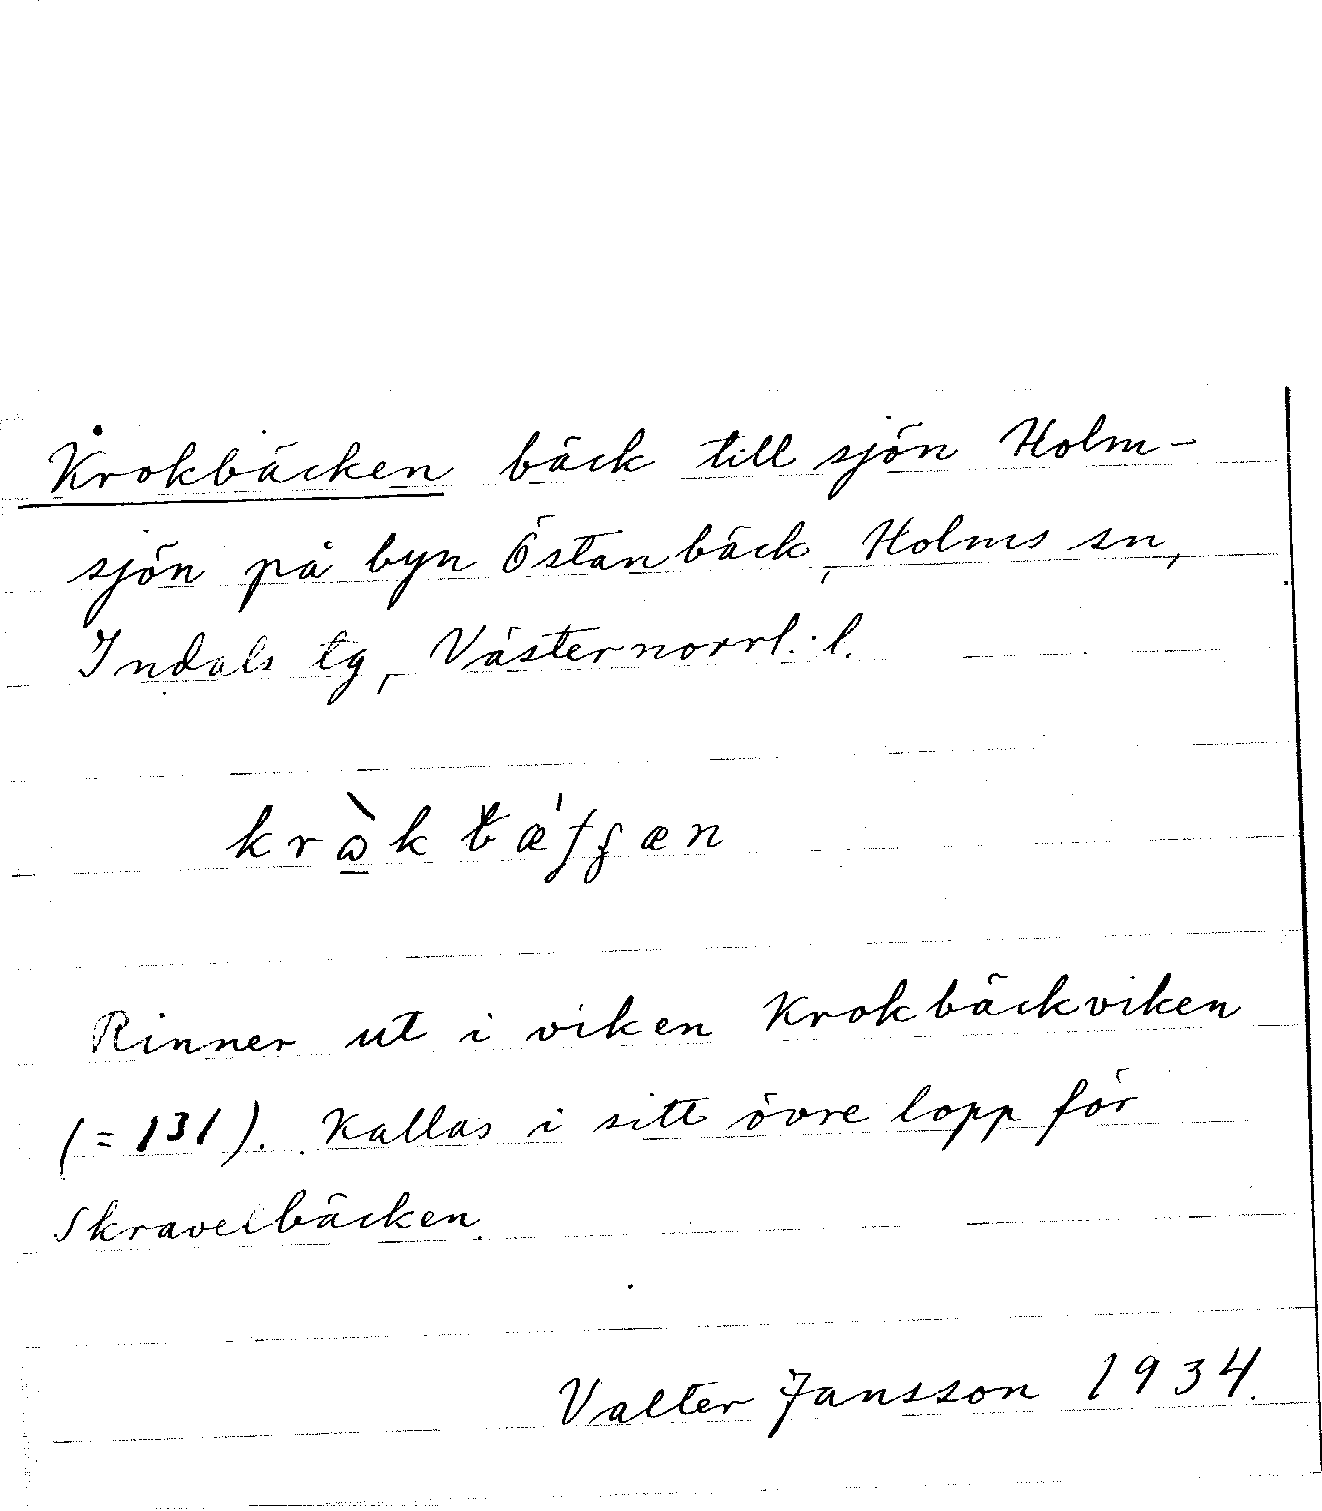 Krokbäcken bäck till sjön Holm-
sjön på byn Östanbäck, Holms sn,
Indals tg, Västernorrl. l.
Rinner ut i viken Krokbäckviken
(= 131). Kallas i sitt övre lopp för
Skravelbäcken.
Valter Jansson 1934.